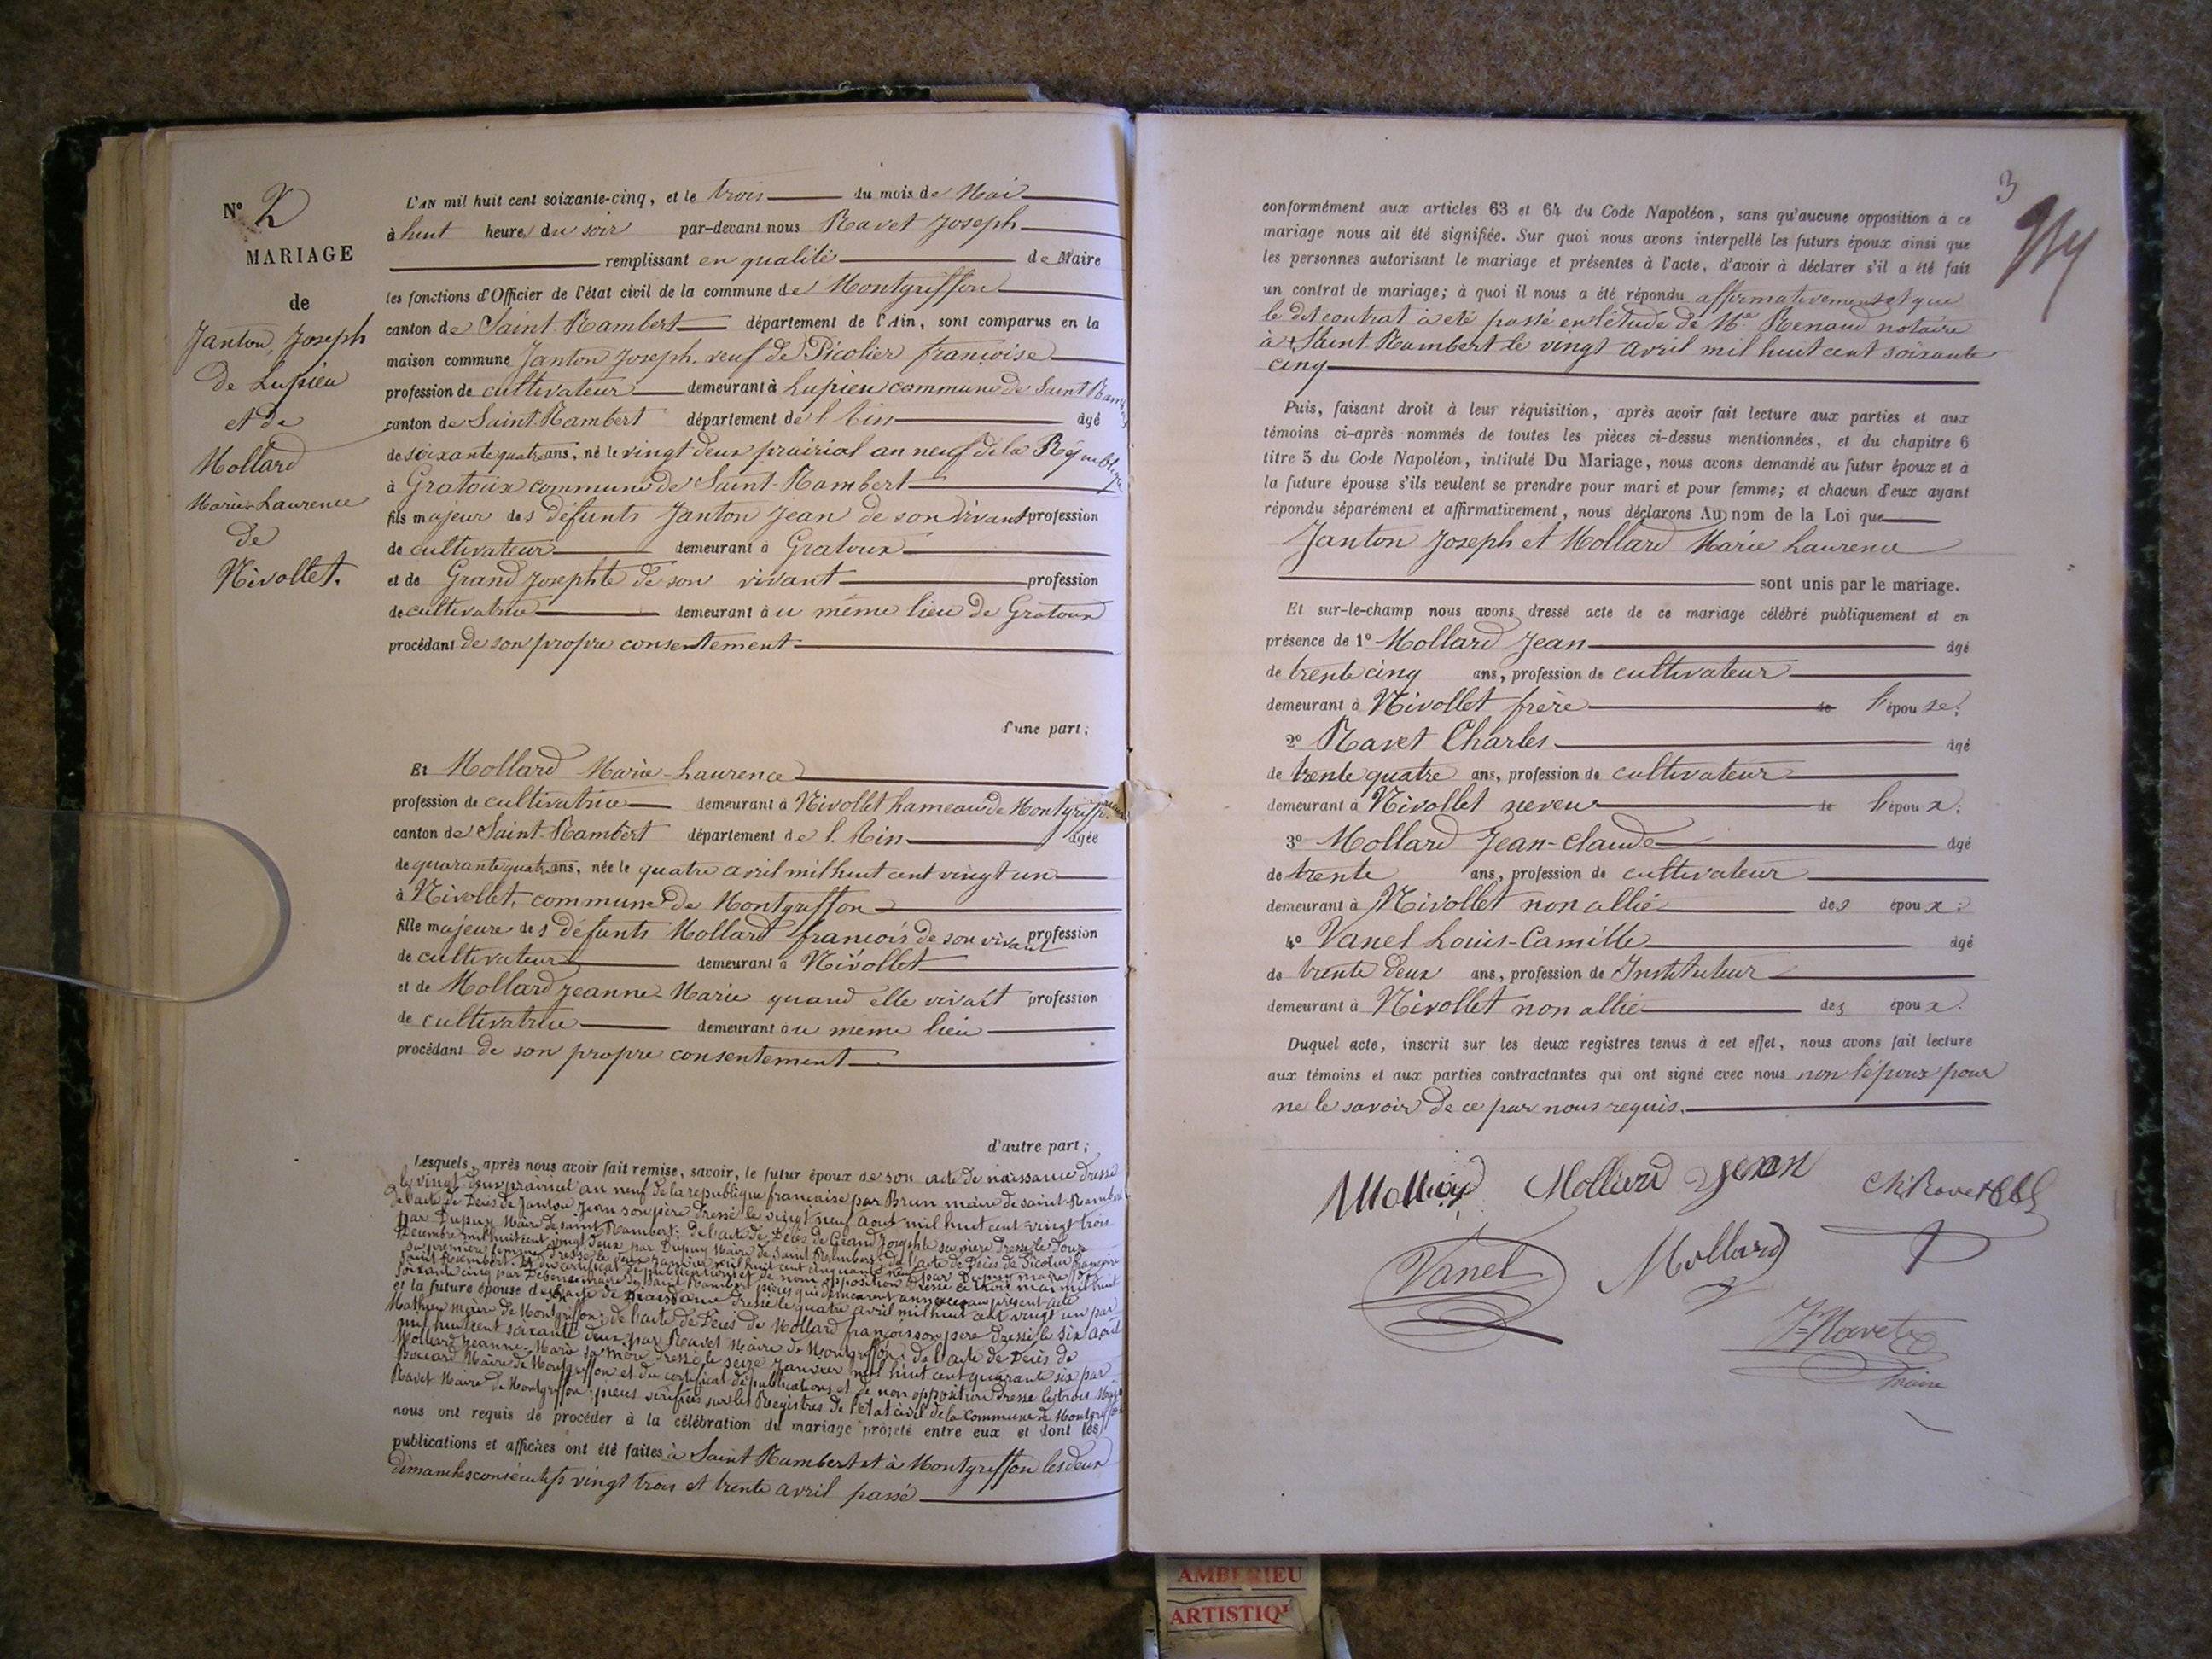 N° 2
MARIAGE
de
Janton, Joseph
de Lupieu
et de
Mollard
Marie-Laurence
de
Nivollet.
L'AN mil huit cent soixante-cinq, et le trois du mois de Mai
à huit heures du soir par-devant nous Ravet Joseph
remplissant en qualité de Maire
les fonctions d'Officier de l'état civil de la commune de Montgriffon
canton de Saint-Rambert département de l'Ain, sont comparus en la
maison commune Janton Joseph, veuf de Picolier françoise
profession de cultivateur demeurant à Lupieu commune de Saint Rambert
canton de Saint-Rambert département de l'Ain âgé
de soixante quatre ans, né le vingt deux prairial an neuf de la République
à Gratoux commune de Saint-Rambert
fils majeur des défunts Janton Jean de son vivant profession
de cultivateur demeurant à Gratoux
et de Grand Josephte de son vivant profession
de cultivatrice demeurant au même lieu de Gratoux
procédant de son propre consentement
d'une part;
Et Mollard Marie-Laurence
profession de cultivatrice demeurant à Nivollet hameau de Montgriffon
canton de Saint-Rambert département de l'Ain âgée
de quarante quatre ans, née le quatre avril mil huit cent vingt un
à Nivollet, commune de Montgriffon
fille majeure des défunts Mollard françois de son vivant profession
de cultivateur demeurant à Nivollet
et de Mollard Jeanne-Marie quand elle vivait profession
de cultivatrice demeurant au même lieu
procédant de son propre consentement
d'autre part;
Lesquels, après nous avoir fait remise, savoir, le futur époux de son acte de naissance dressé
le vingt-deux prairial an neuf de la republique française par Brun maire de saint-Rambert
de l'acte de Décès de Janton Jean son père dressé le vingt neuf Aout mil huit cent vingt trois
par Dupuy Maire de saint Rambert; de l'acte de Décès de Grand Josephte sa mère dressé le Douze
Décembre mil huit cent vingt deux par Dupuy Maire de Saint Rambert; de l'acte de Décès de Picolier françoise
sa première femme dressé le deux janvier mil huit cent cinquante neuf par Dupuy maire de
saint Rambert et du certificat de publications et de non opposition dressé le trois mai mil huit
soixante cinq par maire de saint Rambert pièces qui demeurent annexées au présent acte
et la future épouse de son acte de naissance dressé le quatre avril mil huit cent vingt un par
Mathieu maire de Montgriffon; de l'acte de Décès de Mollard françois son père dressé le six août
mil huit cent soixante deux par Ravet Maire de Montgriffon; de l'acte de Décès de
Mollard Jeanne-Marie sa mère dressé le seize Janvier mil huit cent quarante six par
Maire de Montgriffon et du certificat de publications et de non opposition dressé le trois Mai
Ravet Maire de Montgriffon, pièces vérifiées sur les Registres de l'état civil de la Commune de Montgriffon
nous ont requis de procéder à la célébration du mariage projeté entre eux et dont les
publications et affiches ont été faites à Saint Rambert et à Montgriffon les deux
dimanches consécutifs vingt trois et trente avril passé
3
conformément aux articles 63 et 64 du Code Napoléon, sans qu'aucune opposition à ce
mariage nous ait été signifiée. Sur quoi nous avons interpellé les futurs époux ainsi que
les personnes autorisant le mariage et présentes à l'acte, d'avoir à déclarer s'il a été fait
un contrat de mariage; à quoi il nous a été répondu affirmativement et que
le dit contrat a été passé en l'étude de Me Renaud notaire
à Saint Rambert le vingt avril mil huit cent soixante
cinq
Puis, faisant droit à leur réquisition, après avoir fait lecture aux parties et aux
témoins ci-après nommés de toutes les pièces ci-dessus mentionnées, et du chapitre 6
titre 5 du Code Napoléon, intitulé Du Mariage, nous avons demandé au futur époux et à
la future épouse s'ils veulent se prendre pour mari et pour femme; et chacun d'eux ayant
répondu séparément et affirmativement, nous déclarons Au nom de la Loi que
Janton Joseph et Mollard Marie Laurence
sont unis par le mariage.
Et sur-le-champ nous avons dressé acte de ce mariage célébré publiquement et en
présence de 1° Mollard Jean âgé
de trente cinq ans, profession de cultivateur
demeurant à Nivollet frère de l'épouse;
2° Ravet Charles âgé
de trente quatre ans, profession de cultivateur
demeurant à Nivollet neveu de l'époux;
3° Mollard Jean-Claude âgé
de trente ans, profession de cultivateur
demeurant à Nivollet non allié des époux;
4° Vanel Louis-Camille âgé
de trente deux ans, profession de Instituteur
demeurant à Nivollet non allié des époux.
Duquel acte, inscrit sur les deux registres tenus à cet effet, nous avons fait lecture
aux témoins et aux parties contractantes qui ont signé avec nous non l'époux pour
ne le savoir de ce par nous requis.
Mollard Jean
Vanel
Mollard
Ravet
maire
AMBERIEU
ARTISTIQ